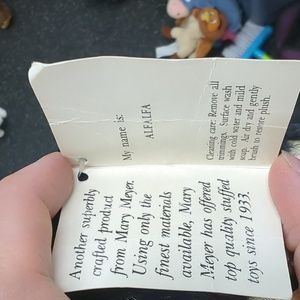 My name is:
ALFALFA
Cleaning care: Remove all
trimmings. Surface wash
with cold water and mild
soap. Air dry and gently
brush to restore plush.
Another superbly
crafted product
from Mary Meyer.
Using only the
finest materials
available, Mary
Meyer has offered
top quality stuffed
toys since 1933.